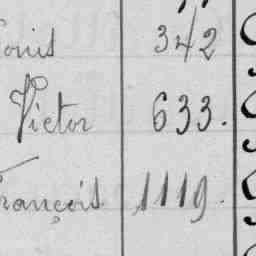 Louis 342
Victor 633.
François 1119.